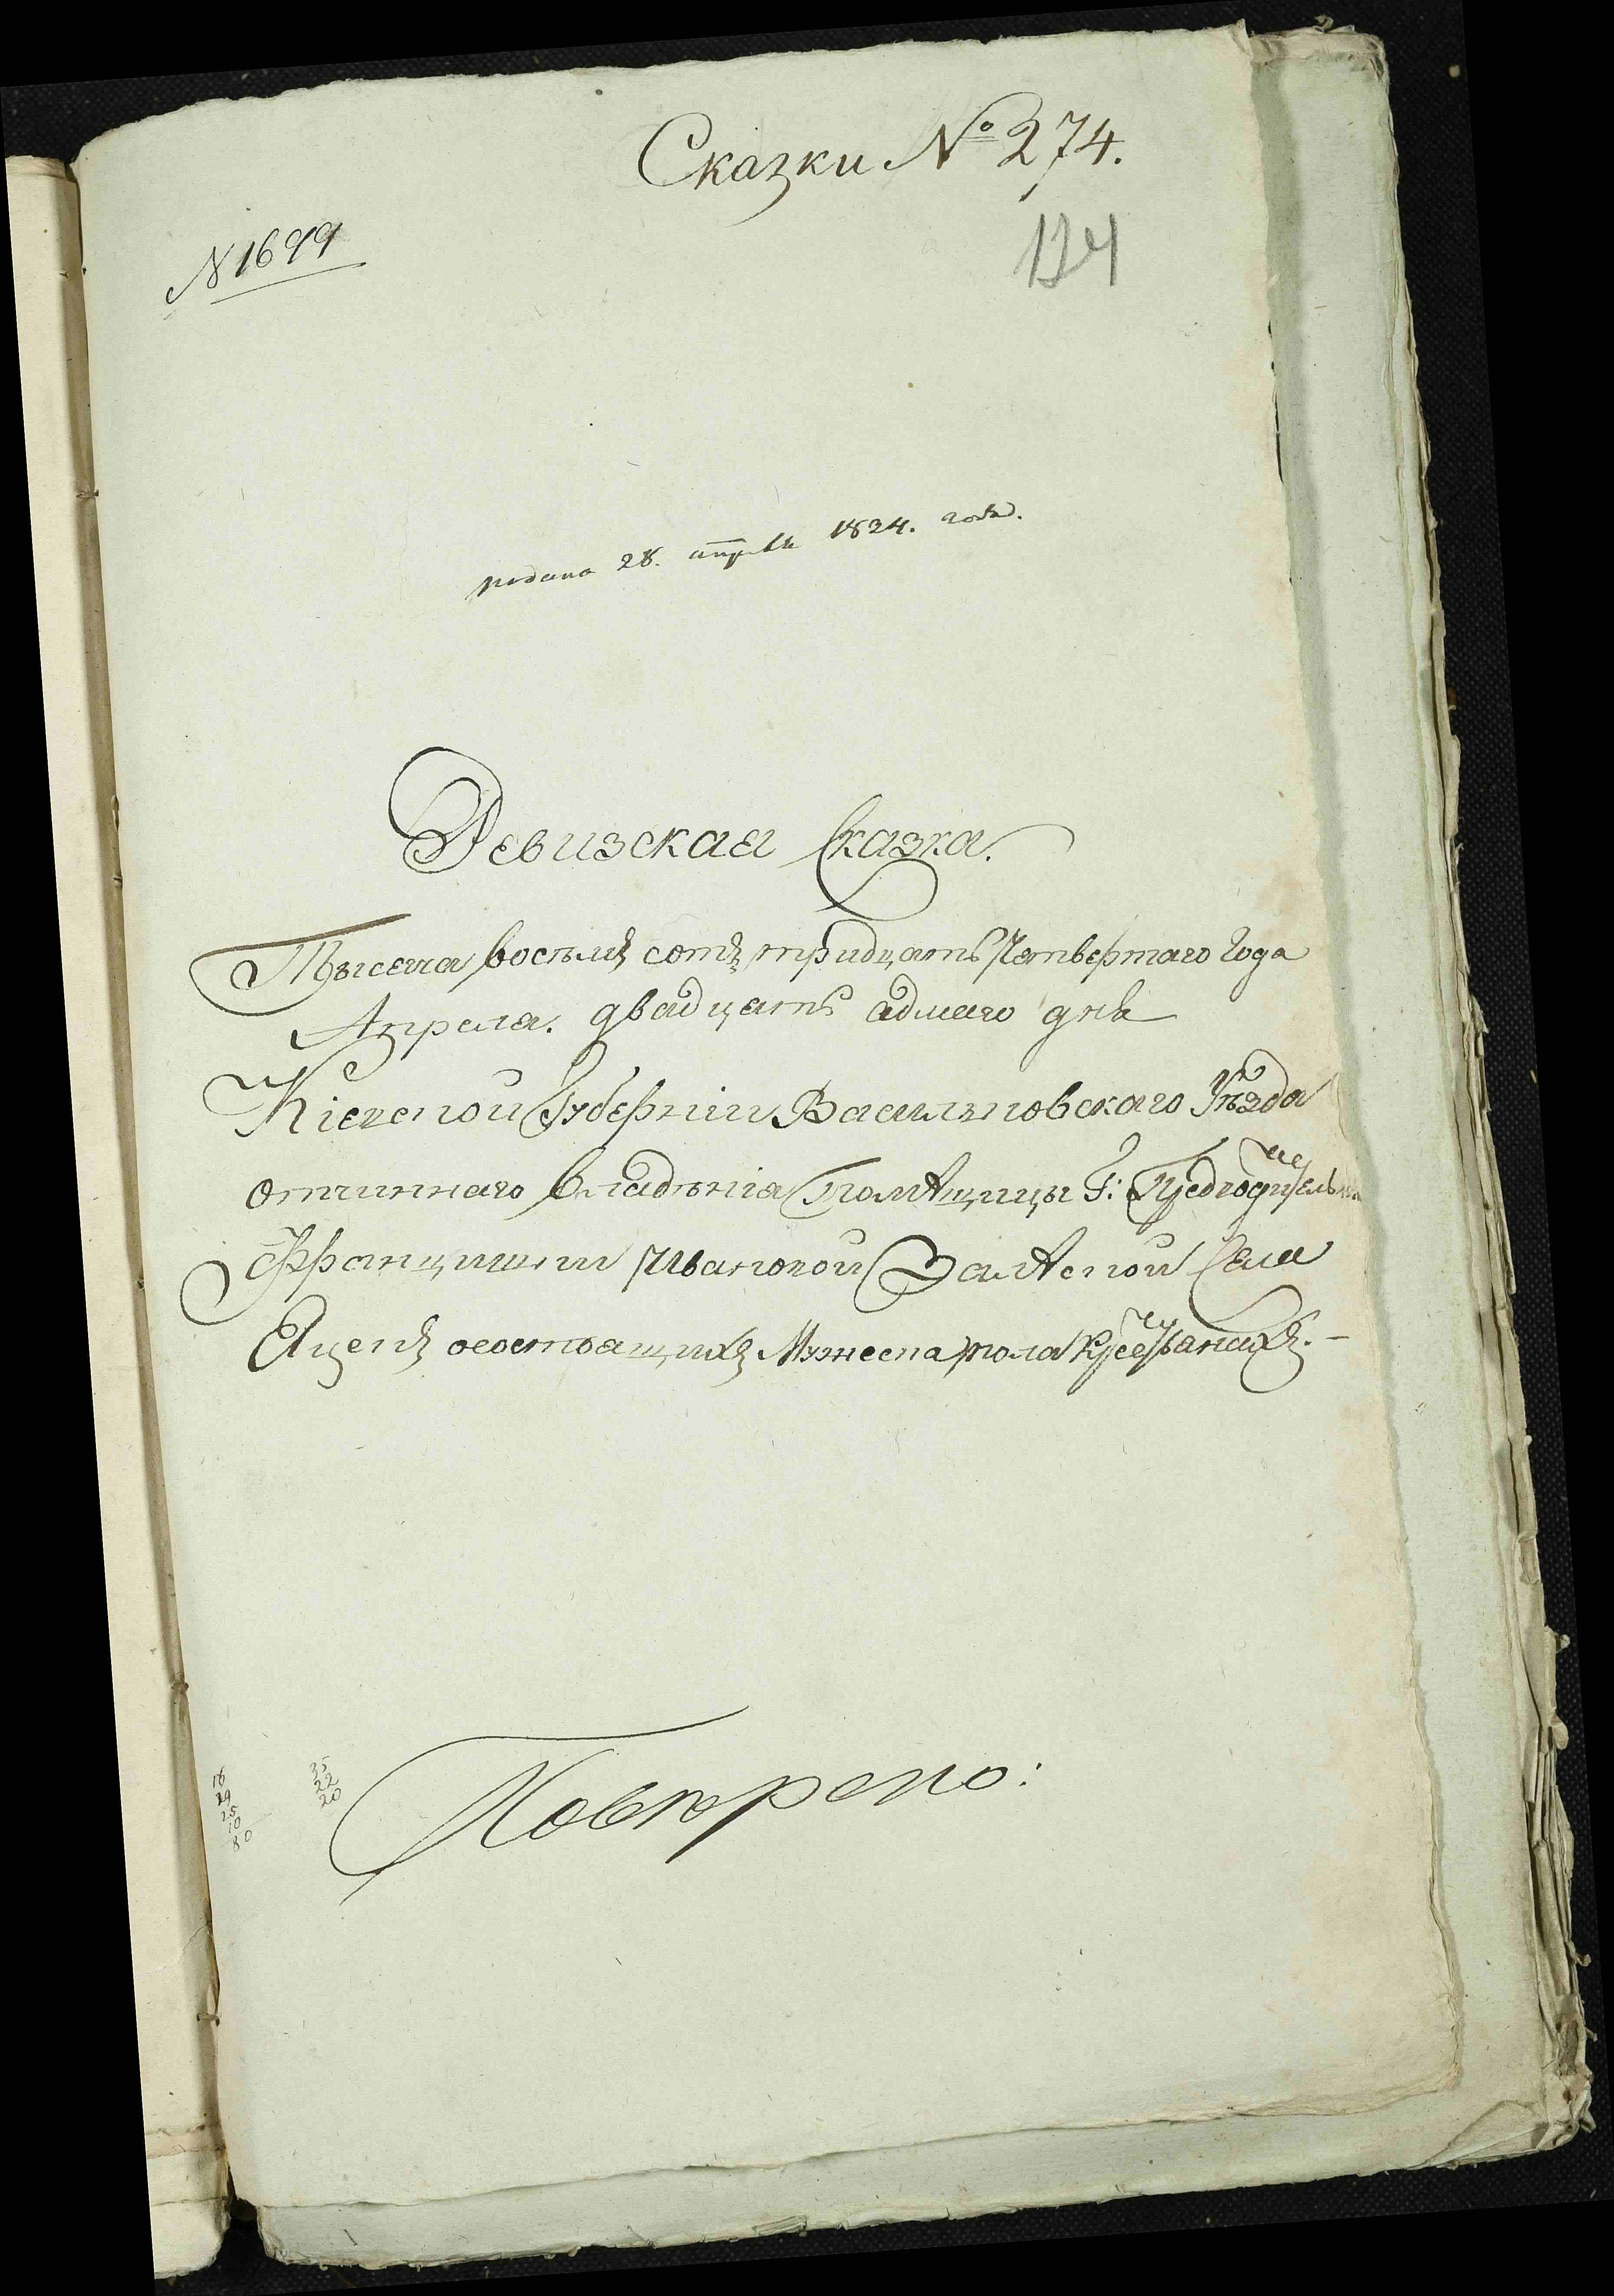 Сказки № 274.
N 1699
124
подана 28. апреля 1834. года.
Ревизская Сказка.
Тысеча восемъ сотъ тридцать Четвертаго Года
Апреля. двадцать адмаго дня
Кіевской Губерніи Васильковскаго Уѣзда
отчиннаго владѣнія Помѣщицы Г:
Францишки Ивановой Залѣской Села
Яцекъ состоящихъ Мужеска пола Крестьянахъ.-
18
29
25
10
80
35
22
20
Поверено: